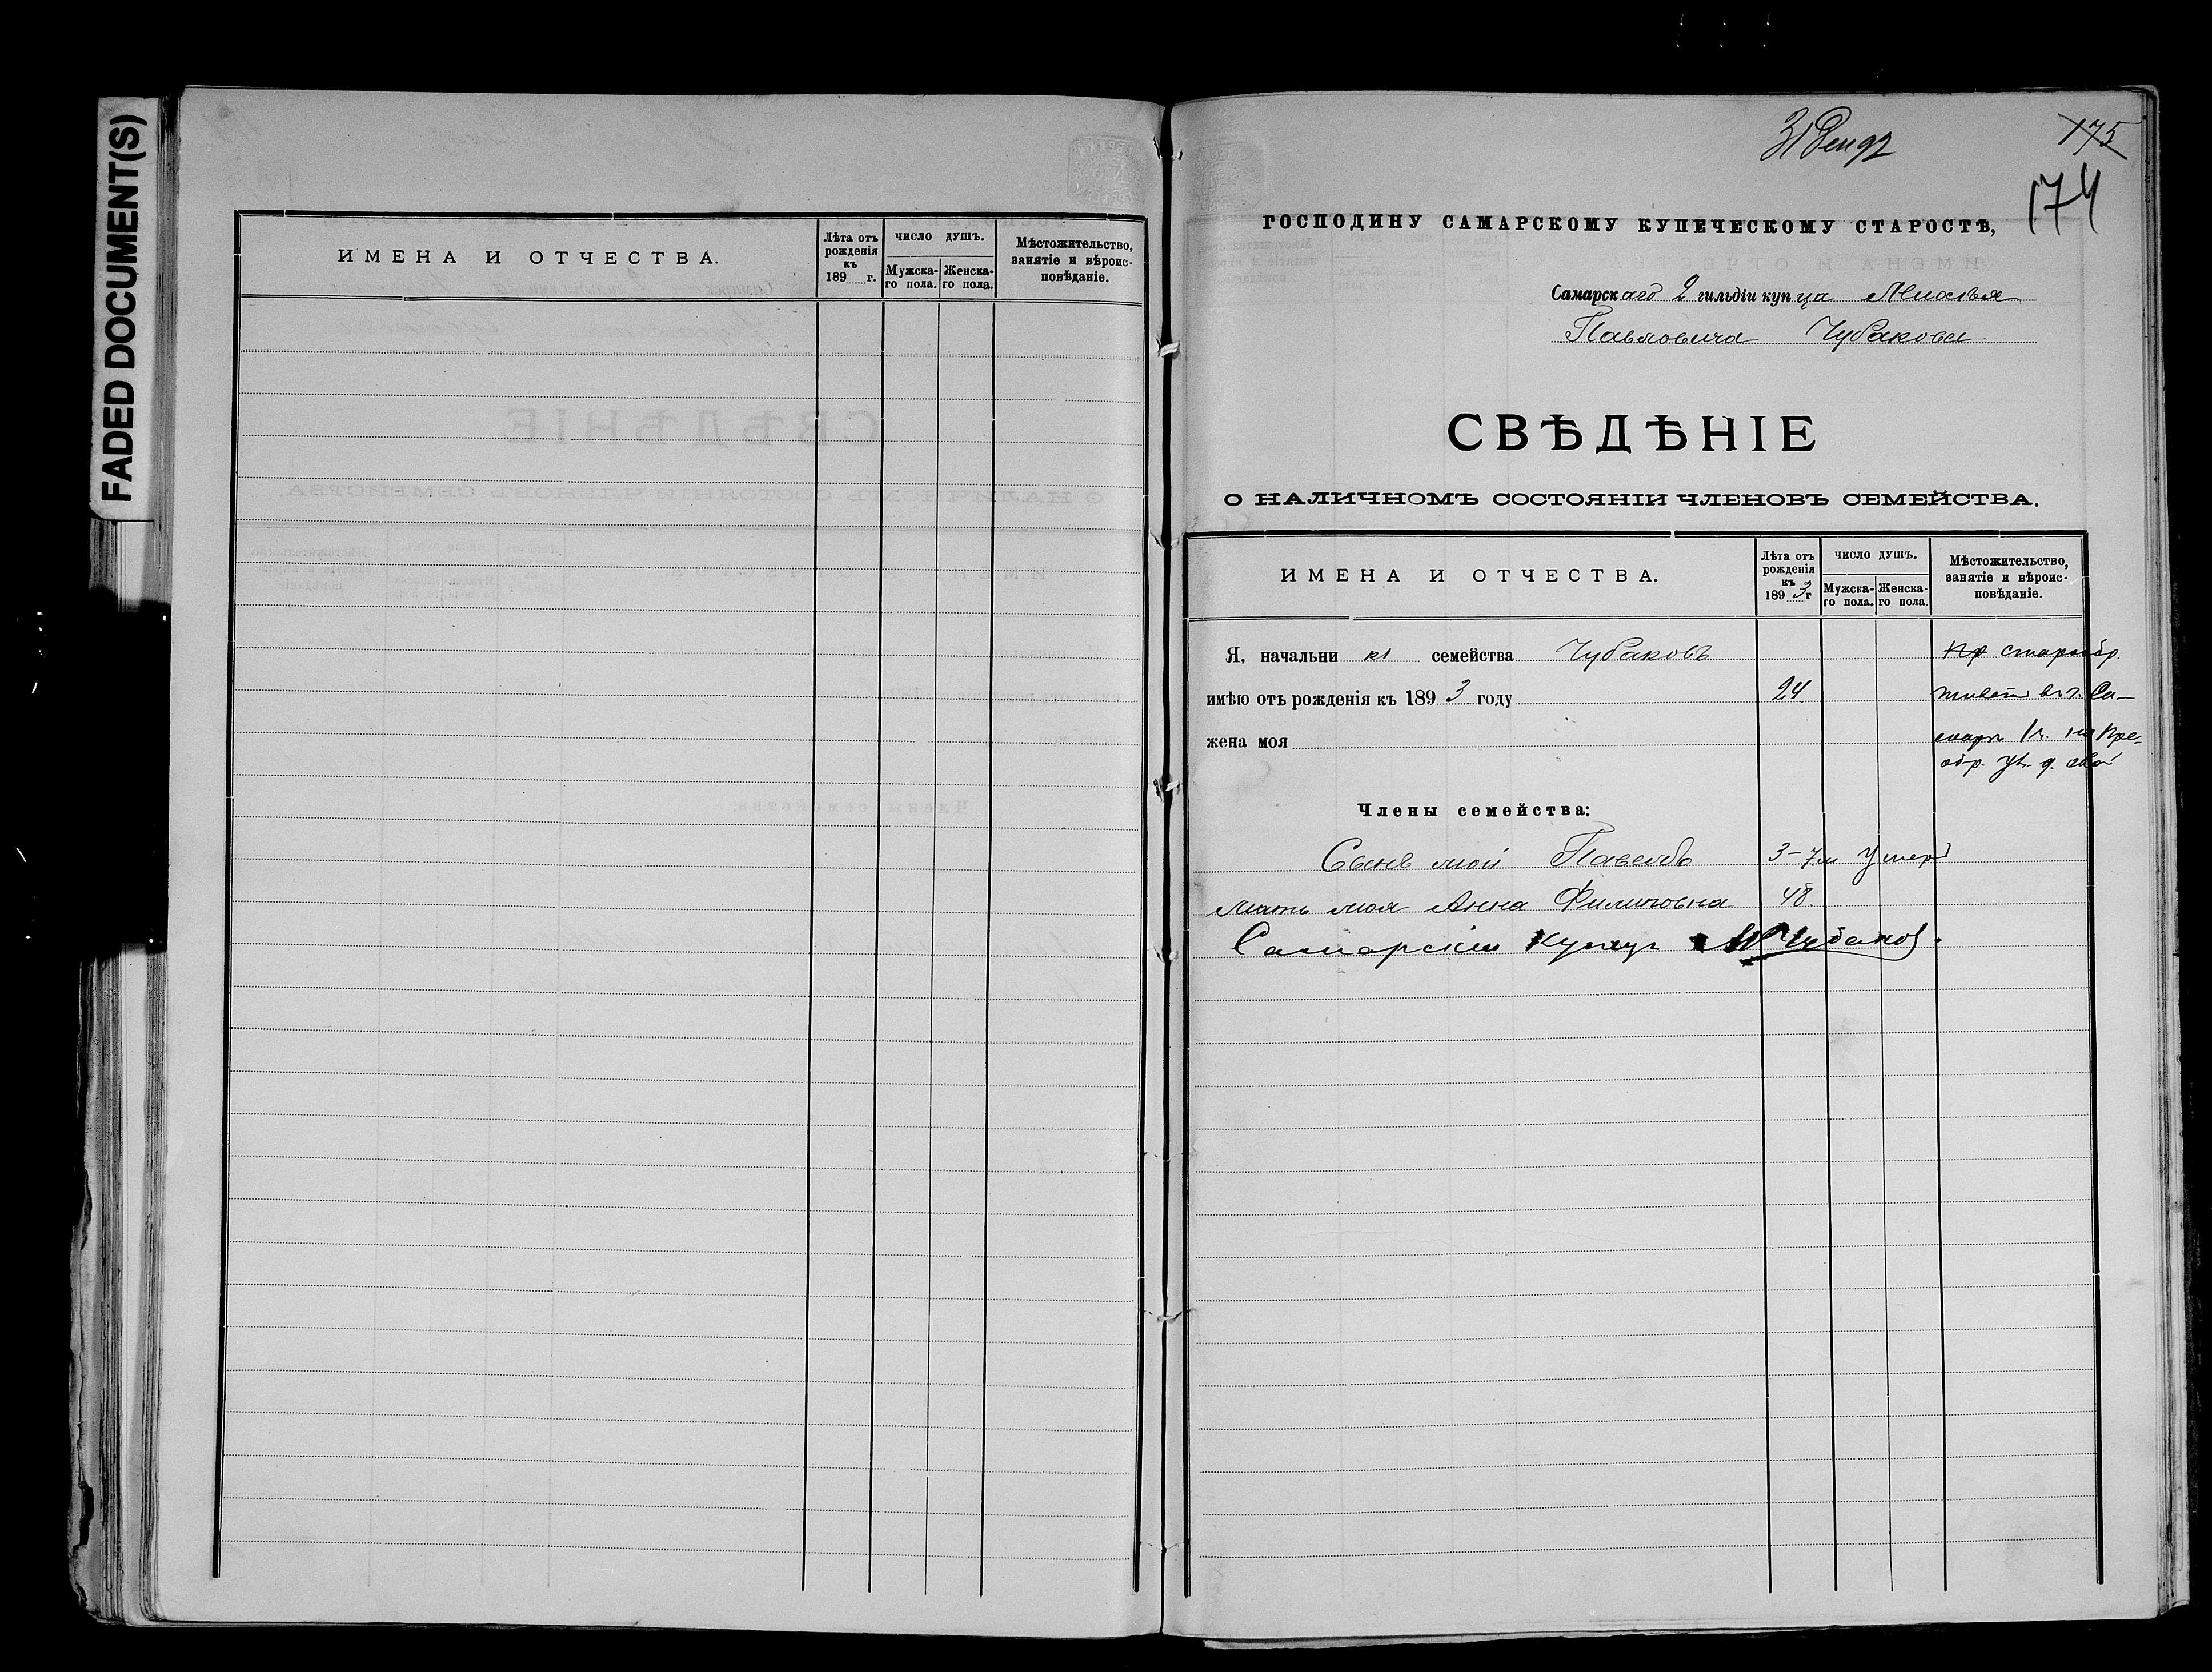 FADED DOCUMENT(S)
ИМЕНА И ОТЧЕСТВА.
Лѣта отъ рожденія къ 189 г.
ЧИСЛО ДУШЪ.
Мужска-го пола.
Женска-го пола.
Мѣстожительство, занятіе и вѣроис-повѣданіе.
31
175
174
ГОСПОДИНУ САМАРСКОМУ КУПЕЧЕСКОМУ СТАРОСТѢ,
Самарскаго 2 гильдіи купца
Павловича Чубакова
СВѢДѢНІЕ
О НАЛИЧНОМЪ СОСТОЯНІИ ЧЛЕНОВЪ СЕМЕЙСТВА.
ИМЕНА И ОТЧЕСТВА.
Лѣта отъ рожденія къ 1893 г
ЧИСЛО ДУШЪ.
Мужска-го пола.
Женска-го пола.
Мѣстожительство, занятіе и вѣроис-повѣданіе.
Я, начальни къ семейства Чубаковъ старообр.
имѣю отъ рожденія къ 1893 году 24 живетъ въ г. Са-
жена моя
обр. ул. д. свой
Члены семейства:
Сынъ мой Павелъ 3-7м Умеръ
мать моя Анна Филиповна 48.
Самарскій Купецъ Чубаков.